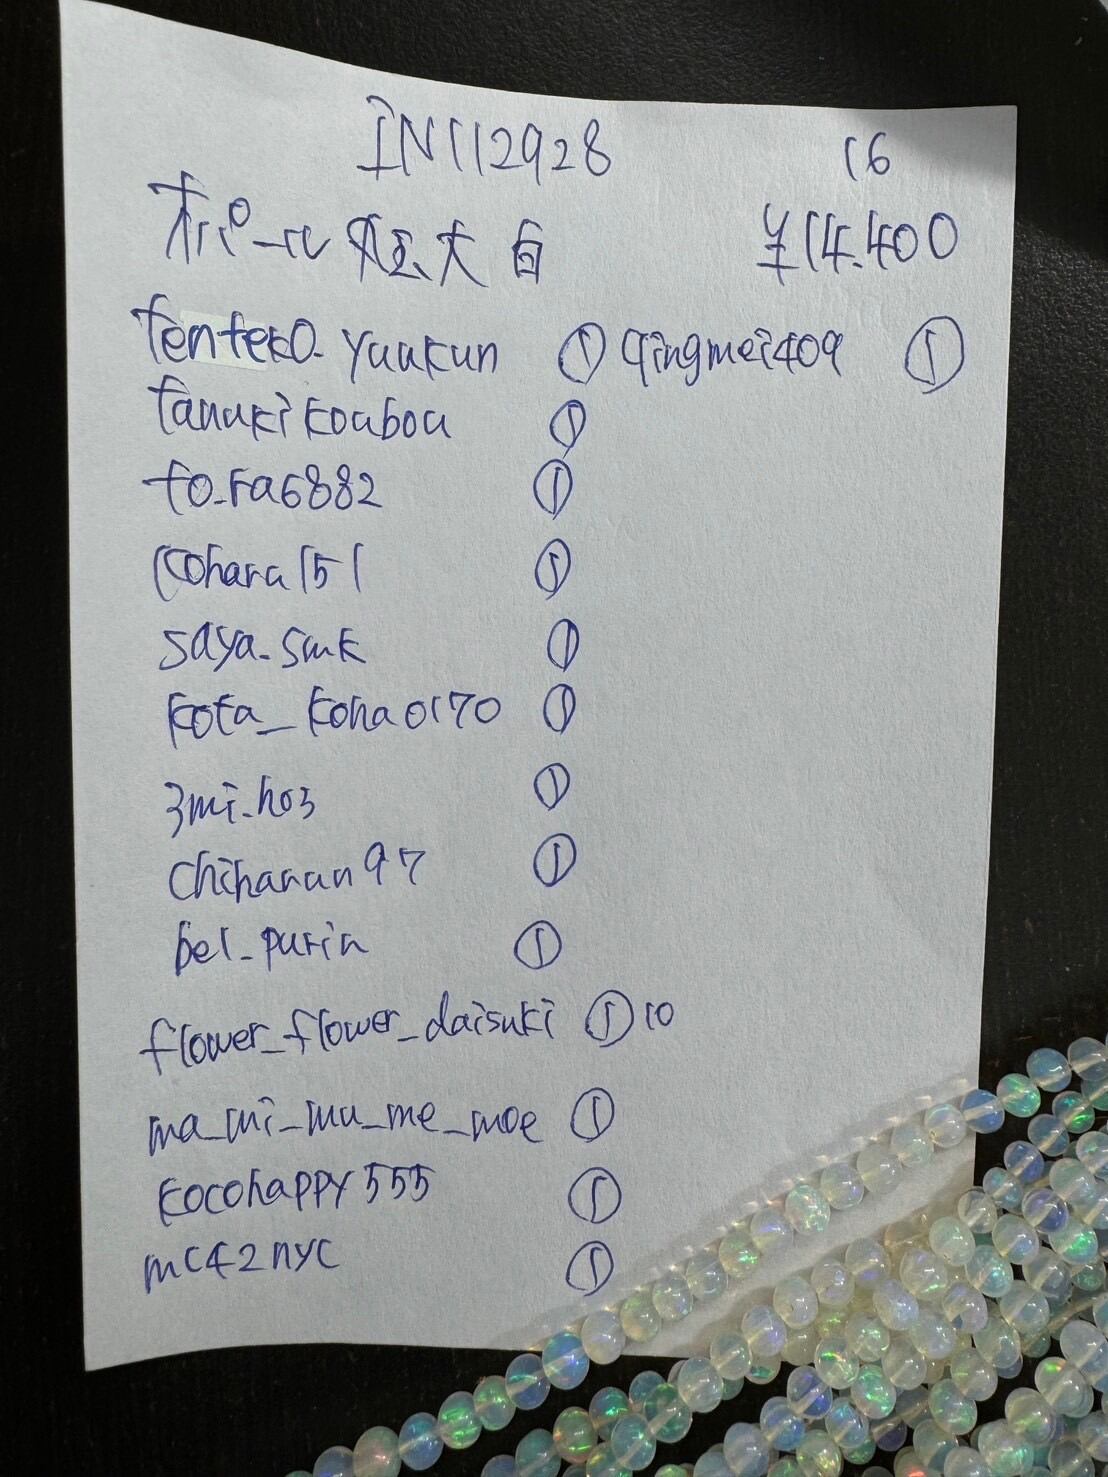 IN112928 16
オパール 超大白 ¥14.400
tenteko_yuukun ① qingmei409 ①
tanukikoubou ①
to_ra6882 ①
kohara151 ①
saya_smk ①
kota_koha0170 ①
3mi_ho3 ①
chiharun97 ①
bel_purin ①
flower_flower_daisuki ① 10
ma_mi_mu_me_moe ①
kocohappy555 ①
mc42nyc ①